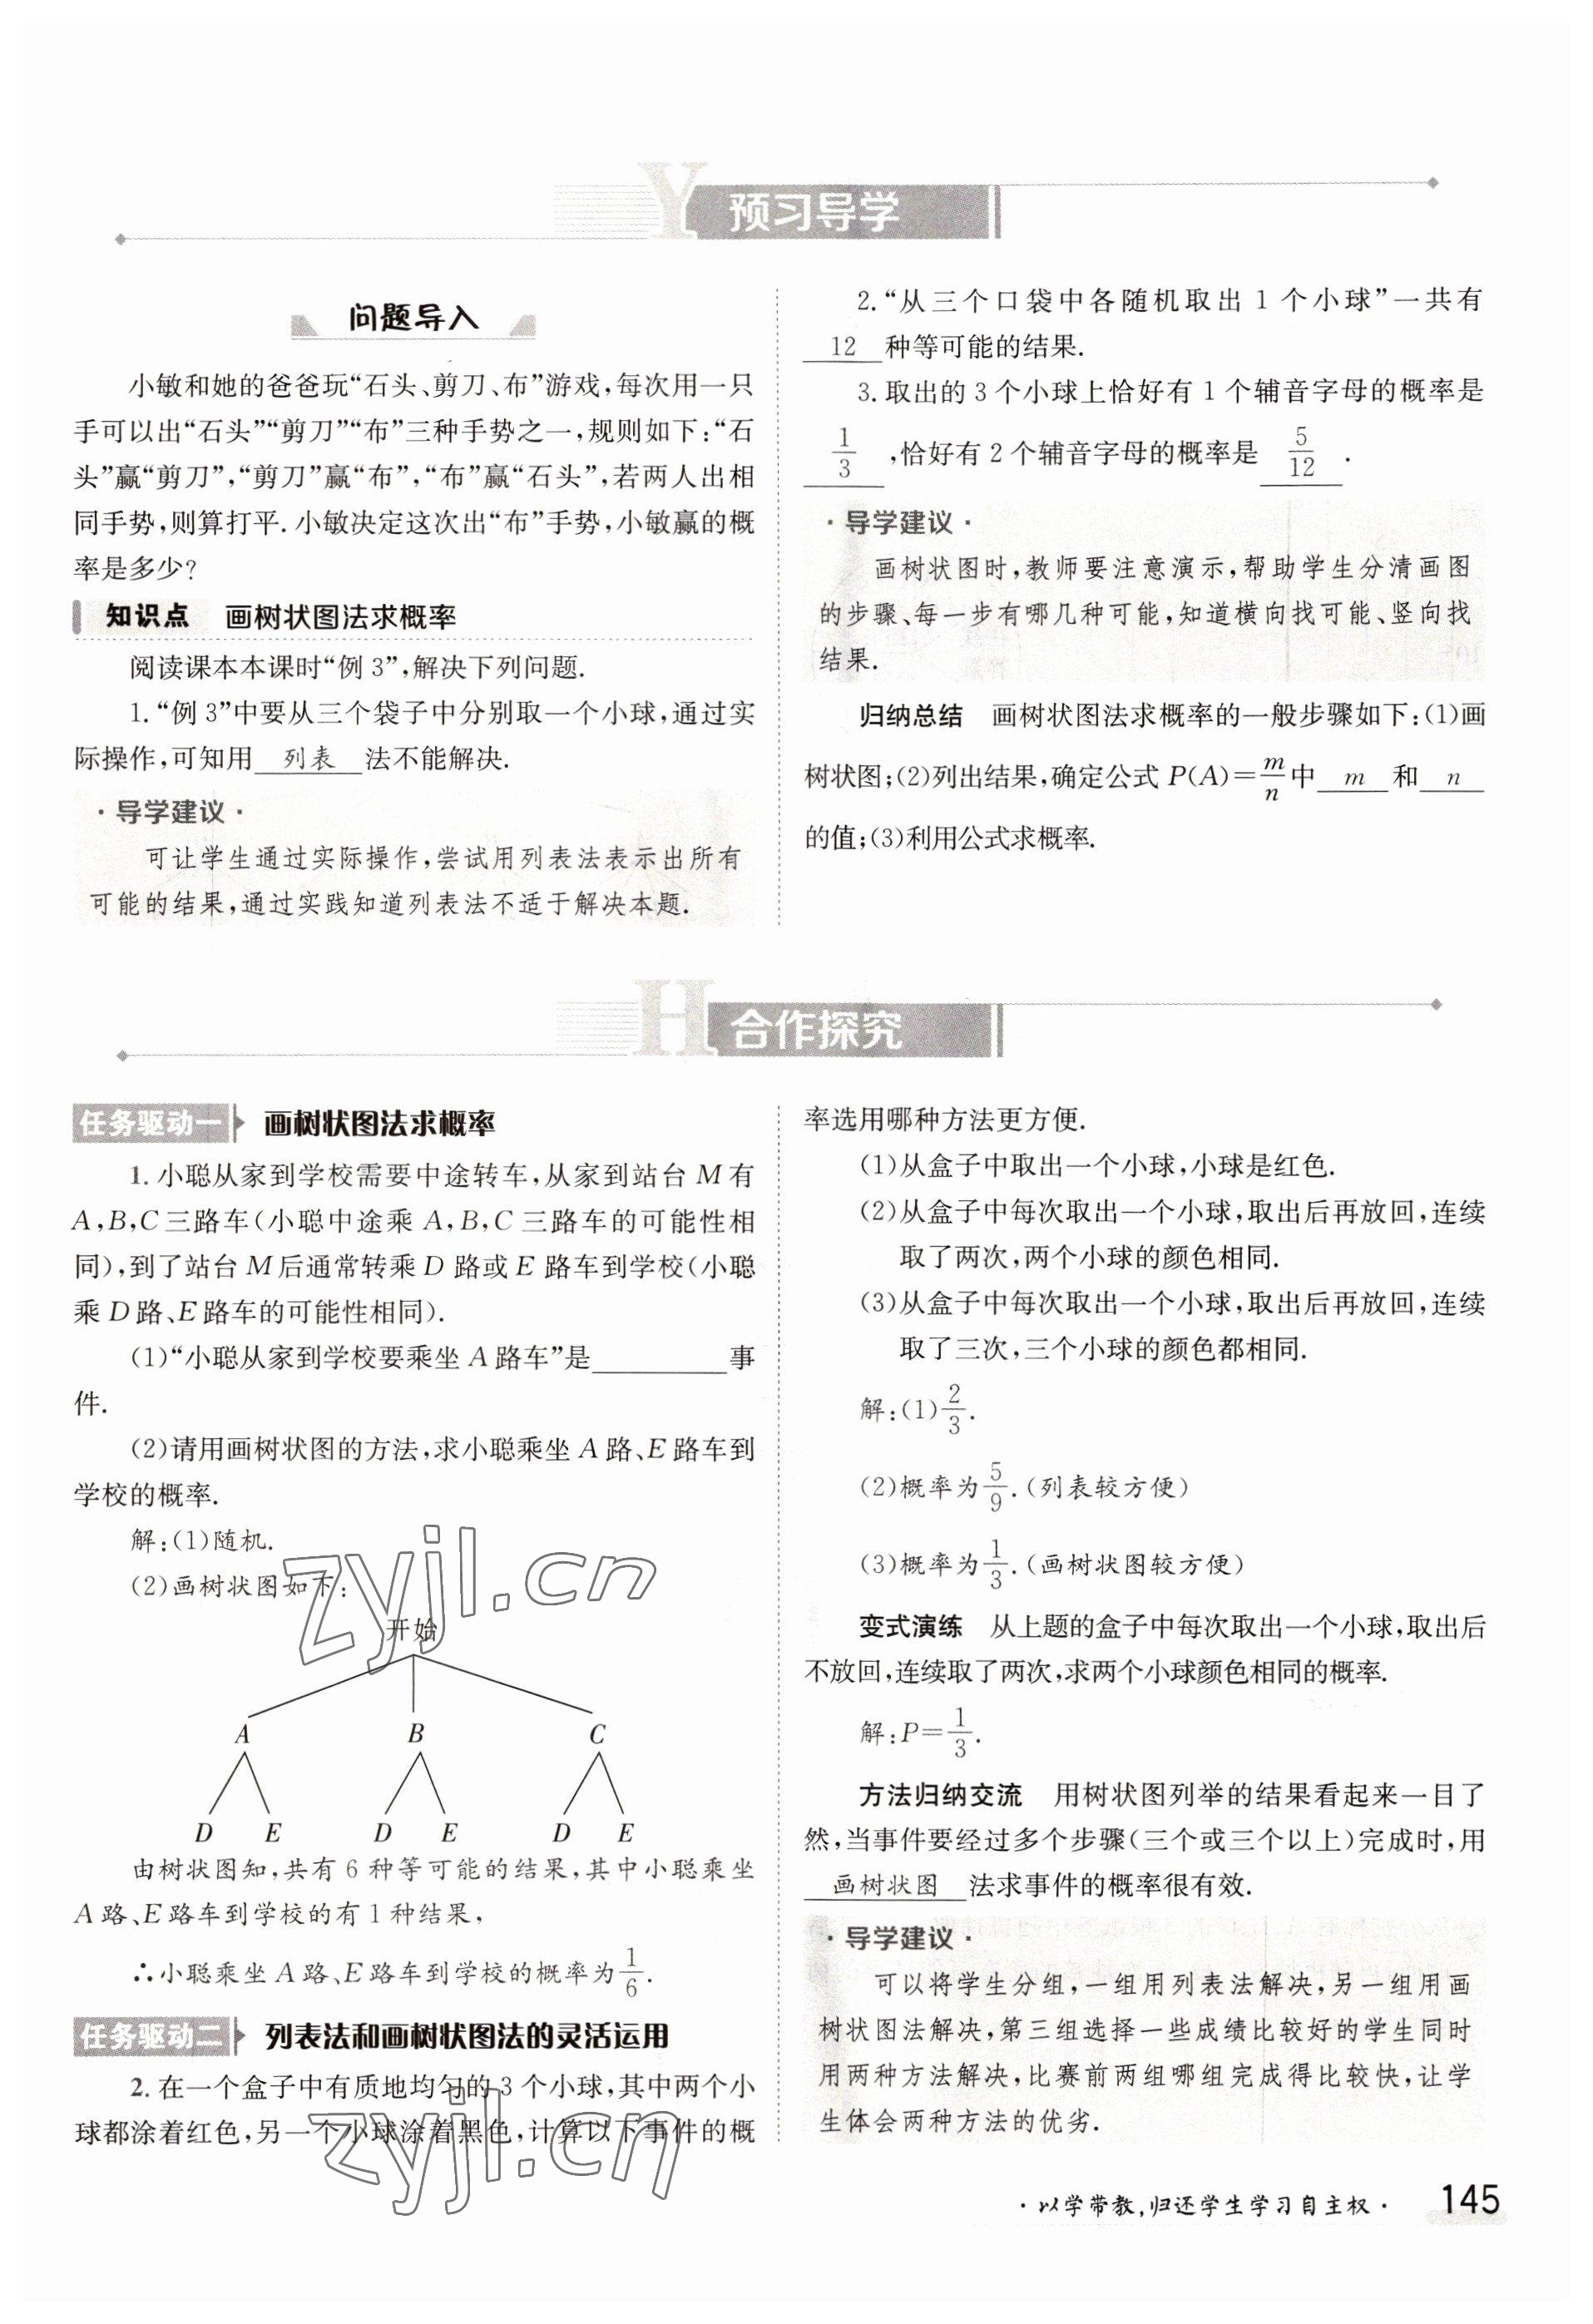 Y 预习导学
问题导入
小敏和她的爸爸玩“石头、剪刀、布”游戏,每次用一只
手可以出“石头”“剪刀”“布”三种手势之一,规则如下:“石
头”赢“剪刀”,“剪刀”赢“布”,“布”赢“石头”,若两人出相
同手势,则算打平.小敏决定这次出“布”手势,小敏赢的概
率是多少?
知识点 画树状图法求概率
阅读课本本课时“例3”,解决下列问题.
1.“例3”中要从三个袋子中分别取一个小球,通过实
际操作,可知用 列表 法不能解决.
·导学建议·
可让学生通过实际操作,尝试用列表法表示出所有
可能的结果,通过实践知道列表法不适于解决本题.
2.“从三个口袋中各随机取出1个小球”一共有
12 种等可能的结果.
3.取出的3个小球上恰好有1个辅音字母的概率是
1/3 ,恰好有2个辅音字母的概率是 5/12 .
·导学建议·
画树状图时,教师要注意演示,帮助学生分清画图
的步骤、每一步有哪几种可能,知道横向找可能、竖向找
结果.
归纳总结 画树状图法求概率的一般步骤如下:(1)画
树状图;(2)列出结果,确定公式P(A)=m/n中 m 和 n
的值;(3)利用公式求概率.
H 合作探究
任务驱动一 画树状图法求概率
1.小聪从家到学校需要中途转车,从家到站台M有
A,B,C三路车(小聪中途乘A,B,C三路车的可能性相
同),到了站台M后通常转乘D路或E路车到学校(小聪
乘D路、E路车的可能性相同).
(1)“小聪从家到学校要乘坐A路车”是__________事
件.
(2)请用画树状图的方法,求小聪乘坐A路、E路车到
学校的概率.
解:(1)随机.
(2)画树状图如下:
开始
A B C
D E D E D E
由树状图知,共有6种等可能的结果,其中小聪乘坐
A路、E路车到学校的有1种结果,
∴小聪乘坐A路、E路车到学校的概率为1/6.
任务驱动二 列表法和画树状图法的灵活运用
2.在一个盒子中有质地均匀的3个小球,其中两个小
球都涂着红色,另一个小球涂着黑色,计算以下事件的概
率选用哪种方法更方便.
(1)从盒子中取出一个小球,小球是红色.
(2)从盒子中每次取出一个小球,取出后再放回,连续
取了两次,两个小球的颜色相同.
(3)从盒子中每次取出一个小球,取出后再放回,连续
取了三次,三个小球的颜色都相同.
解:(1)2/3.
(2)概率为5/9.(列表较方便)
(3)概率为1/3.(画树状图较方便)
变式演练 从上题的盒子中每次取出一个小球,取出后
不放回,连续取了两次,求两个小球颜色相同的概率.
解:P=1/3.
方法归纳交流 用树状图列举的结果看起来一目了
然,当事件要经过多个步骤(三个或三个以上)完成时,用
画树状图 法求事件的概率很有效.
·导学建议·
可以将学生分组,一组用列表法解决,另一组用画
树状图法解决,第三组选择一些成绩比较好的学生同时
用两种方法解决,比赛前两组哪组完成得比较快,让学
生体会两种方法的优劣.
zyjl.cn
zyjl.cn
·以学带教,归还学生学习自主权· 145